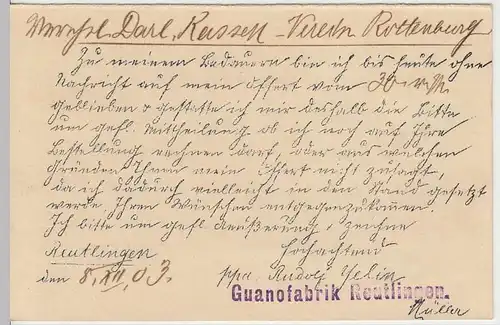 Darl. Kassen-Verein Rottenburg
Zu meinem Bedauern bin ich bis heute ohne
Nachricht auf mein Offert vom 30. v. M.
geblieben & gestatte ich mir deshalb die Bitte
um gefl. Mittheilung ob ich noch auf Ihre
Bestellung rechnen darf, oder aus welchen
Gründen Ihnen mein Offert nicht zusagt,
da ich dadurch vielleicht in den Stand gesetzt
werde Ihren Wünschen entgegenzukommen.
Ich bitte um gefl. Aeußerung & zeichne
Reutlingen Hochachtend
den 8. XII. 03. ppa. Rudolf
Guanofabrik Reutlingen.
Müller